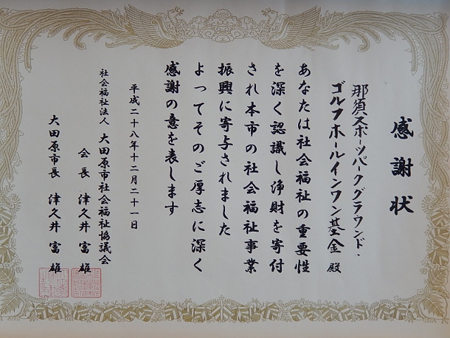 感謝状
那須スポーツパークグラウンド・
ゴルフホールインワン基金 殿
あなたは社会福祉の重要性
を深く認識し浄財を寄付
され本市の社会福祉事業
振興に寄与されました
よってそのご厚志に深く
感謝の意を表します
平成二十八年十二月二十一日
社会福祉法人 大田原市社会福祉協議会
会長 津久井富雄
大田原市長 津久井富雄